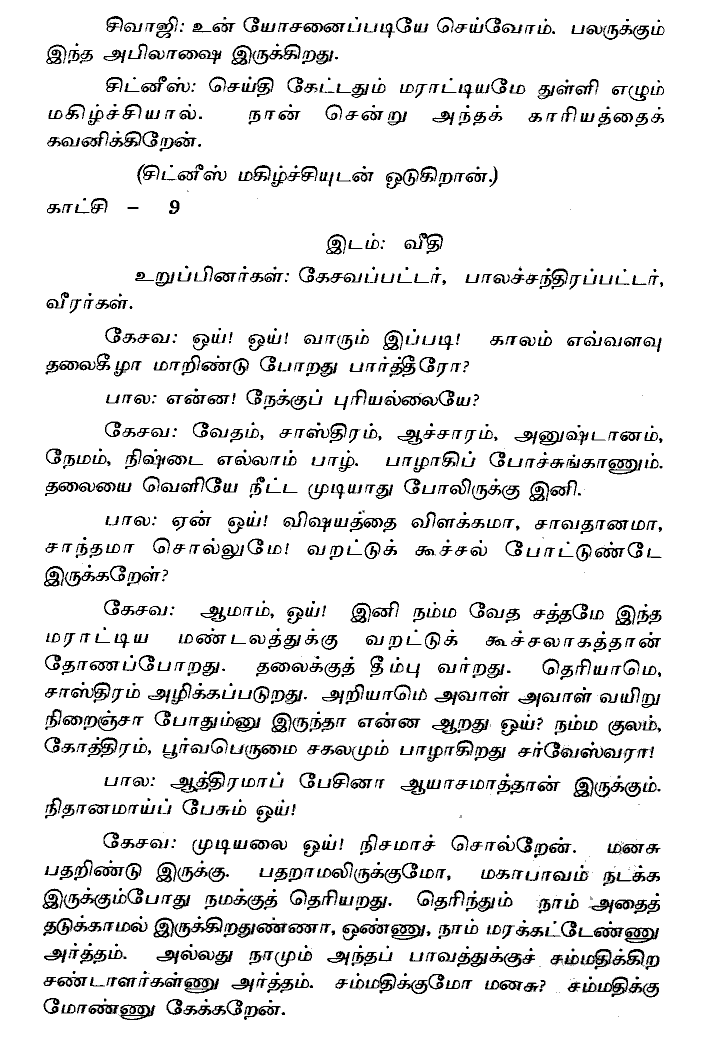 சிவாஜி: உன் யோசனைப்படியே செய்வோம். பலருக்கும்
இந்த அபிலாஷை இருக்கிறது.
சிட்னீஸ்: செய்தி கேட்டதும் மராட்டியமே துள்ளி எழும்
மகிழ்ச்சியால். நான் சென்று அந்தக் காரியத்தைக்
கவனிக்கிறேன்.
(சிட்னீஸ் மகிழ்ச்சியுடன் ஓடுகிறான்.)
காட்சி – 9
இடம்: வீதி
உறுப்பினர்கள்: கேசவப்பட்டர், பாலச்சந்திரப்பட்டர்,
வீரர்கள்.
கேசவ: ஒய்! ஒய்! வாரும் இப்படி! காலம் எவ்வளவு
தலைகீழா மாறிண்டு போறது பார்த்தீரோ?
பால: என்ன! நேக்குப் புரியல்லையே?
கேசவ: வேதம், சாஸ்திரம், ஆச்சாரம், அனுஷ்டானம்,
நேமம், நிஷ்டை எல்லாம் பாழ். பாழாகிப் போச்சுங்காணும்.
தலையை வெளியே நீட்ட முடியாது போலிருக்கு இனி.
பால: ஏன் ஒய்! விஷயத்தை விளக்கமா, சாவதானமா,
சாந்தமா சொல்லுமே! வறட்டுக் கூச்சல் போட்டுண்டே
இருக்கறேள்?
கேசவ: ஆமாம், ஒய்! இனி நம்ம வேத சத்தமே இந்த
மராட்டிய மண்டலத்துக்கு வறட்டுக் கூச்சலாகத்தான்
தோணப்போறது. தலைக்குத் தீம்பு வர்றது. தெரியாமெ,
சாஸ்திரம் அழிக்கப்படுறது. அறியாமெ அவாள் அவாள் வயிறு
நிறைஞ்சா போதும்னு இருந்தா என்ன ஆறது ஒய்? நம்ம குலம்,
கோத்திரம், பூர்வபெருமை சகலமும் பாழாகிறது சர்வேஸ்வரா!
பால: ஆத்திரமாப் பேசினா ஆயாசமாத்தான் இருக்கும்.
நிதானமாய்ப் பேசும் ஒய்!
கேசவ: முடியலை ஒய்! நிசமாச் சொல்றேன். மனசு
பதறிண்டு இருக்கு. பதறாமலிருக்குமோ, மகாபாவம் நடக்க
இருக்கும்போது நமக்குத் தெரியறது. தெரிந்தும் நாம் அதைத்
தடுக்காமல் இருக்கிறதுண்ணா, ஒண்ணு, நாம் மரக்கட்டேண்ணு
அர்த்தம். அல்லது நாமும் அந்தப் பாவத்துக்குச் சம்மதிக்கிற
சண்டாளர்கள்ணு அர்த்தம். சம்மதிக்குமோ மனசு? சம்மதிக்கு
மோண்ணு கேக்கறேன்.